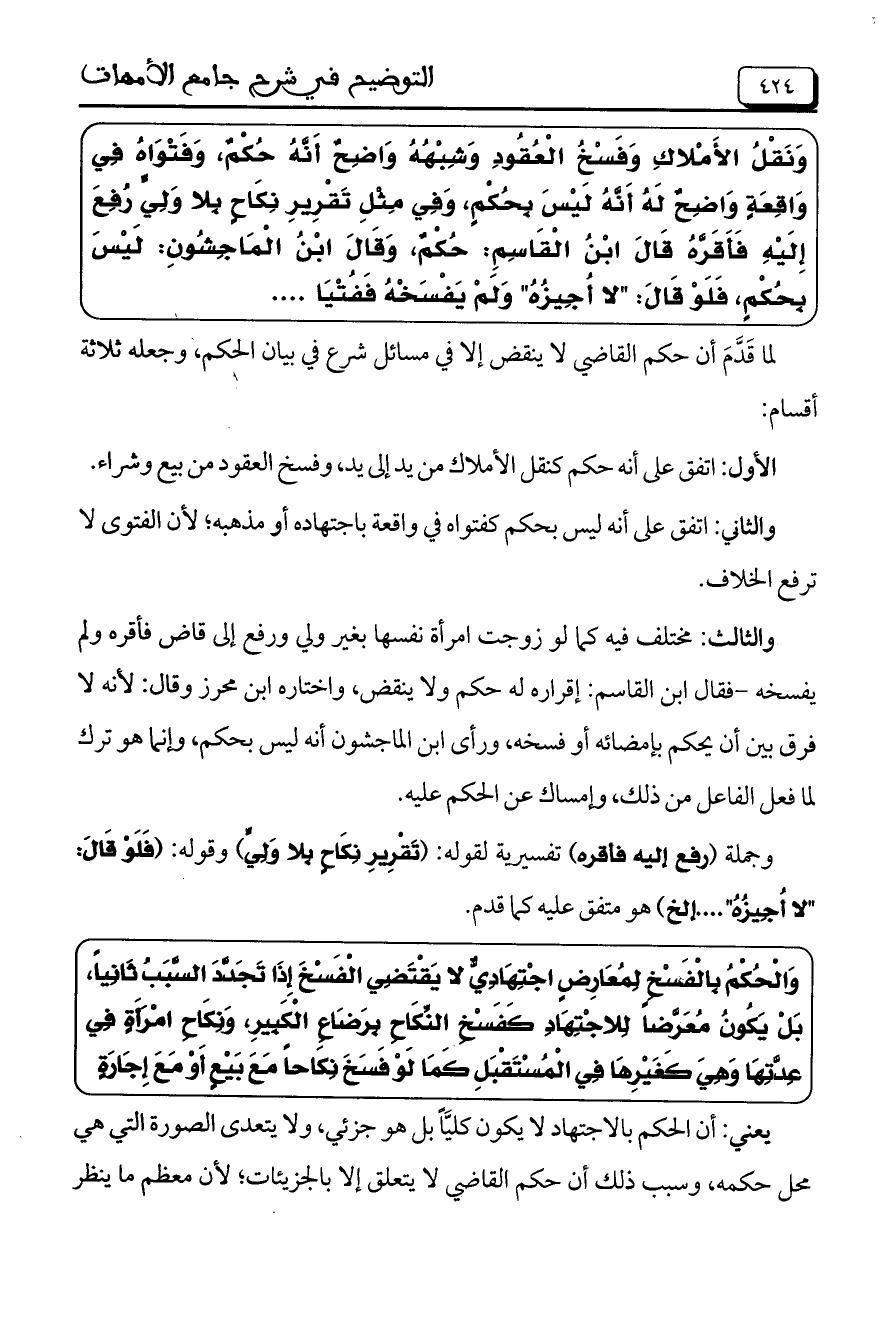 ٤٢٤
التوضيح في شرح جامع الأمهات
وَنَقْلُ الأَمْلاكِ وَفَسْخُ الْعُقُودِ وَشِبْهُهُ وَاضِحٌ أَنَّهُ حُكْمٌ، وَفَتْوَاهُ فِي
وَاقِعَةٍ وَاضِحٌ لَهُ أَنَّهُ لَيْسَ بِحُكْمٍ، وَفِي مِثْلِ تَقْرِيرِ نِكَاحٍ بِلا وَلِيٍّ رُفِعَ
إِلَيْهِ فَأَقَرَّهُ قَالَ ابْنُ الْقَاسِمِ: حُكْمٌ، وَقَالَ ابْنُ الْمَاجِشُونِ: لَيْسَ
بِحُكْمٍ، فَلَوْ قَالَ: "لا أُجِيزُهُ" وَلَمْ يَفْسَخْهُ فَفُتْيَا ....
لما قَدَّمَ أن حكم القاضي لا ينقض إلا في مسائل شرع في بيان الحكم، وجعله ثلاثة
أقسام:
الأول: اتفق على أنه حكم كنقل الأملاك من يد إلى يد، وفسخ العقود من بيع وشراء.
والثاني: اتفق على أنه ليس بحكم كفتواه في واقعة باجتهاده أو مذهبه؛ لأن الفتوى لا
ترفع الخلاف.
والثالث: مختلف فيه كما لو زوجت امرأة نفسها بغير ولي ورفع إلى قاض فأقره ولم
يفسخه -فقال ابن القاسم: إقراره له حكم ولا ينقض، واختاره ابن محرز وقال: لأنه لا
فرق بين أن يحكم بإمضائه أو فسخه، ورأى ابن الماجشون أنه ليس بحكم، وإنما هو ترك
لما فعل الفاعل من ذلك، وإمساك عن الحكم عليه.
وجملة (رفع إليه فأقره) تفسيرية لقوله: (تَقْرِيرِ نِكَاحٍ بِلا وَلِيٍّ) وقوله: (فَلَوْ قَالَ:
"لا أُجِيزُهُ"....إلخ) هو متفق عليه كما قدم.
وَالْحُكْمُ بِالْفَسْخِ لِمُعَارِضٍ اجْتِهَادِيٍّ لا يَقْتَضِي الْفَسْخَ إِذَا تَجَدَّدَ السَّبَبُ ثَانِياً،
بَلْ يَكُونُ مُعَرَّضاً لِلاجْتِهَادِ كَفَسْخِ النِّكَاحِ بِرَضَاعِ الْكَبِيرِ، وَنِكَاحِ امْرَأَةٍ فِي
عِدَّتِهَا وَهِيَ كَغَيْرِهَا فِي الْمُسْتَقْبَلِ كَمَا لَوْ فَسَخَ نِكَاحاً مَعَ بَيْعٍ أَوْ مَعَ إِجَارَةٍ
يعني: أن الحكم بالاجتهاد لا يكون كليَّاً بل هو جزئي، ولا يتعدى الصورة التي هي
محل حكمه، وسبب ذلك أن حكم القاضي لا يتعلق إلا بالجزيئات؛ لأن معظم ما ينظر